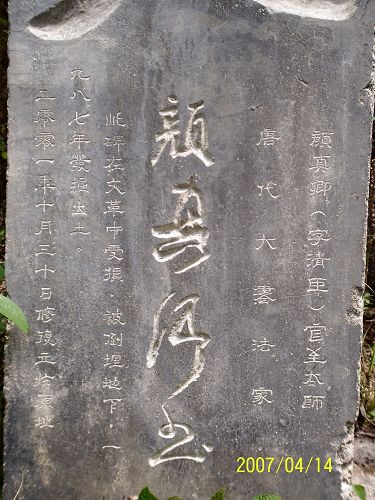 顏真卿（字清臣）官至太師
唐代大書法家
顏真卿書
此碑在文革中受損，被倒埋地下，一
九八七年發掘出土。
二零零一年十月三十日修復立於原址
2007/04/14